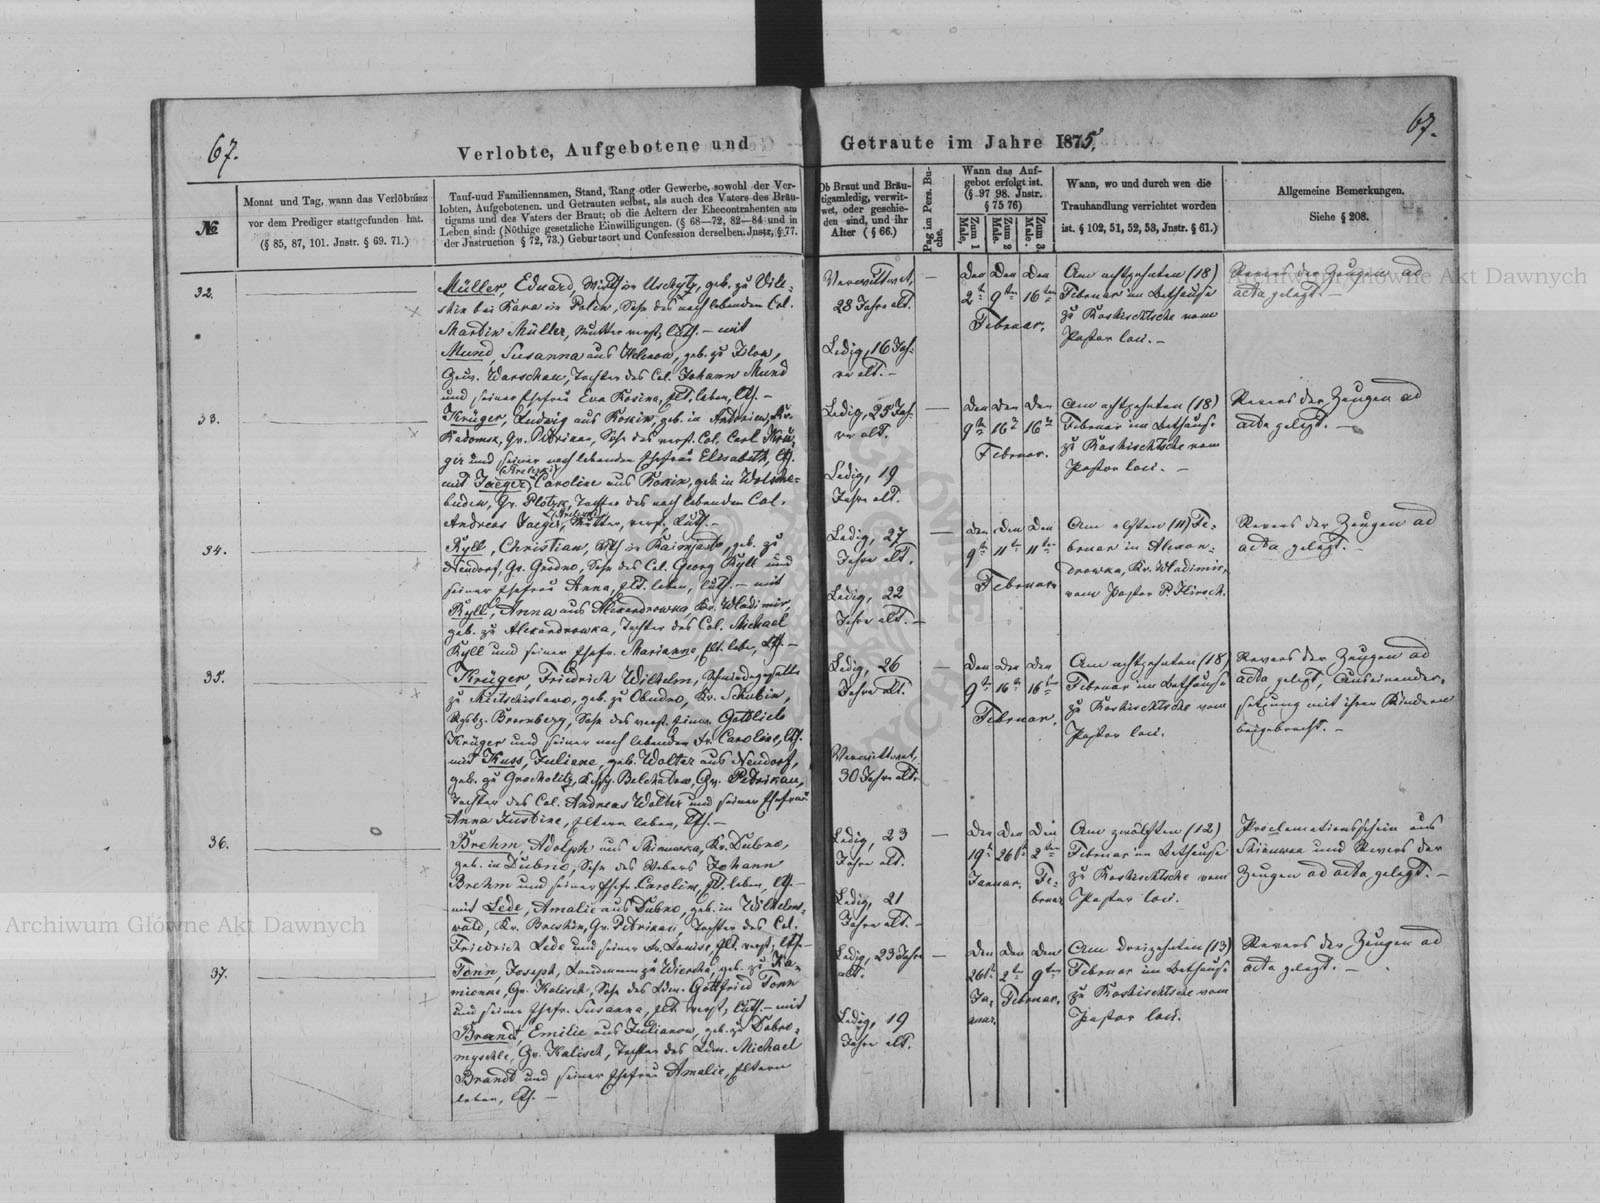 67.
67.
Verlobte, Aufgebotene und
Getraute im Jahre 1875.
№
Monat und Tag, wann das Verlöbnisz
vor dem Prediger stattgefunden hat.
(§ 85, 87, 101. Jnstr. § 69. 71.)
Tauf-und Familiennamen, Stand, Rang oder Gewerbe, sowohl der Ver-
lobten, Aufgebotenen und Getrauten selbst, als auch des Vaters des Bräu-
tigams und des Vaters der Braut; ob die Aeltern der Ehecontrahenten am
Leben sind: (Nöthige gesetzliche Einwilligungen. (§ 68—72, 82—84 und in
der Jnstruction § 72, 73.) Geburtsort und Confession derselben. Jnstr. § 77.
Ob Braut und Bräu-
tigam ledig, verwit-
wet, oder geschie-
den sind, und ihr
Alter (§ 66.)
Pag im Pers. Bu-
che.
Wann das Auf-
gebot erfolgt ist.
(§ 97 98. Jnstr.
§ 75 76)
Zum 1 Male.
Zum 2 Male.
Zum 3 Male.
Wann, wo und durch wen die
Trauhandlung verrichtet worden
ist. § 102, 51, 52, 53, Jnstr. § 61.)
Allgemeine Bemerkungen.
Siehe § 208.
32.
Müller, Eduard, Wirth in geb. zu
bei Kara in Polen, Sohn des noch lebenden Col.
Martin Müller, Mutter verst., luth. – mit
Mund, Susanna aus Helenow, geb. zu Ilow,
Gouv. Warschau, Tochter des Col. Johann Mund
und seiner Ehefrau Eva Rosina, Elt. leben, lth. –
Verwittwet,
28 Jahre alt.
Ledig, 16 Jah-
re alt. –
Den Den Den
2ten 9ten 16ten
Februar.
Am achtzehnten (18)
Februar im Bethause
zu Roshischtsche vom
Pastor loci. –
Revers der Zeugen ad
acta gelegt. –
33.
Krüger, Ludwig aus Konin, geb. in
Gv. Petrikau, Sohn des verst. Col. Carl Krü-
ger und seiner noch lebenden Ehefrau Elisabeth, lth.
mit Jaeger Caroline aus Konin, geb. in
Gv. Plotzk, Tochter des noch lebenden Col.
Andreas Jaeger, Mutter verst. Luth. –
Ledig, 25 Jah-
re alt.
Ledig, 19
Jahre alt.
Den Den Den
9ten 16ten 16ten
Februar.
Am achtzehnten (18)
Februar im Bethause
zu Roshischtsche vom
Pastor loci. –
Revers der Zeugen ad
acta gelegt. –
34.
Ryll, Christian, geb. zu
Neudorf, Gv. Grodno, Sohn des Col. Georg Ryll und
seiner Ehefrau Anna, Elt. leben, luth. – mit
Ryll, Anna aus Alexandrowka, Kr. Wladimir,
geb. zu Alexandrowka, Tochter des Col. Michael
Ryll und seiner Ehefr. Marianne, Elt. leben, lth. –
Ledig, 27
Jahre alt.
Ledig, 22
Jahre alt. –
Den Den Den
9ten 11ten 11ten
Februar
Am elften (11) Fe-
bruar in Alexan-
drowka, Kr. Wladimir,
vom Pastor P. Hirsch.
Revers der Zeugen ad
acta gelegt. –
35.
Krüger, Friedrich Wilhelm, Schmiedegeselle
zu geb. zu Obudno, Kr. Schubin,
Rgbz. Bromberg, Sohn des verst. Einw. Gottlieb
Krüger und seiner noch lebenden Fr. Caroline, lth.
mit Kuss, Juliane, geb. Wolter aus Neudorf,
geb. zu Grocholitz, Belchatow, Gv. Petrikau,
Tochter des Col. Andreas Wolter und seiner Ehefrau
Anna Justine, Eltern leben, lth. –
Ledig, 26
Jahre alt.
Verwittwet,
30 Jahre alt.
Den Den Den
9ten 16ten 16ten
Februar.
Am achtzehnten (18)
Februar im Bethause
zu Roshischtsche vom
Pastor loci.
Revers der Zeugen ad
acta gelegt, Auseinander-
setzung mit ihren Kindern
beigebracht. –
36.
Brehm, Adolph aus Shinuwka, Kr. Dubno,
geb. in Dubno, Sohn des Webers Johann
Brehm und seiner Ehefr. Caroline, Elt. leben, lth. –
mit Lede, Amalie aus Dubno, geb. in Wilhelms-
wald, Kr. Gv. Petrikau, Tochter des Col.
Friedrich Lede und seiner Fr. Louise, Elt. verst., lth. –
Ledig, 23
Jahre alt.
Ledig, 21
Jahre alt. –
Den Den Den
19ten 26ten 2ten
Januar. Fe-
bruar
Am zwölften (12)
Februar im Bethause
zu Roshischtsche vom
Pastor loci.
Proclamationsschein aus
Shinuwka und Revers der
Zeugen ad acta gelegt. –
37.
Tonn, Joseph, Landmann zu geb. zu Ka-
mionne, Gv. Kalisch, Sohn des Ldm. Gottfried Tonn
und seiner Ehefr. Susanna, Elt. verst., luth. – mit
Brandt, Emilie aus Julianow, geb. zu Dobro-
myschle, Gv. Kalisch, Tochter des Ldm. Michael
Brandt und seiner Ehefrau Amalie, Eltern
leben, lth. –
Ledig, 23 Jahre
alt.
Ledig, 19
Jahre alt.
Den Den Den
26ten 2ten 9ten
Ja- Februar.
nuar.
Am dreizehnten (13)
Februar im Bethause
zu Roshischtsche vom
Pastor loci.
Revers der Zeugen ad
acta gelegt. –
Archiwum Główne Akt Dawnych
Archiwum Główne Akt Dawnych